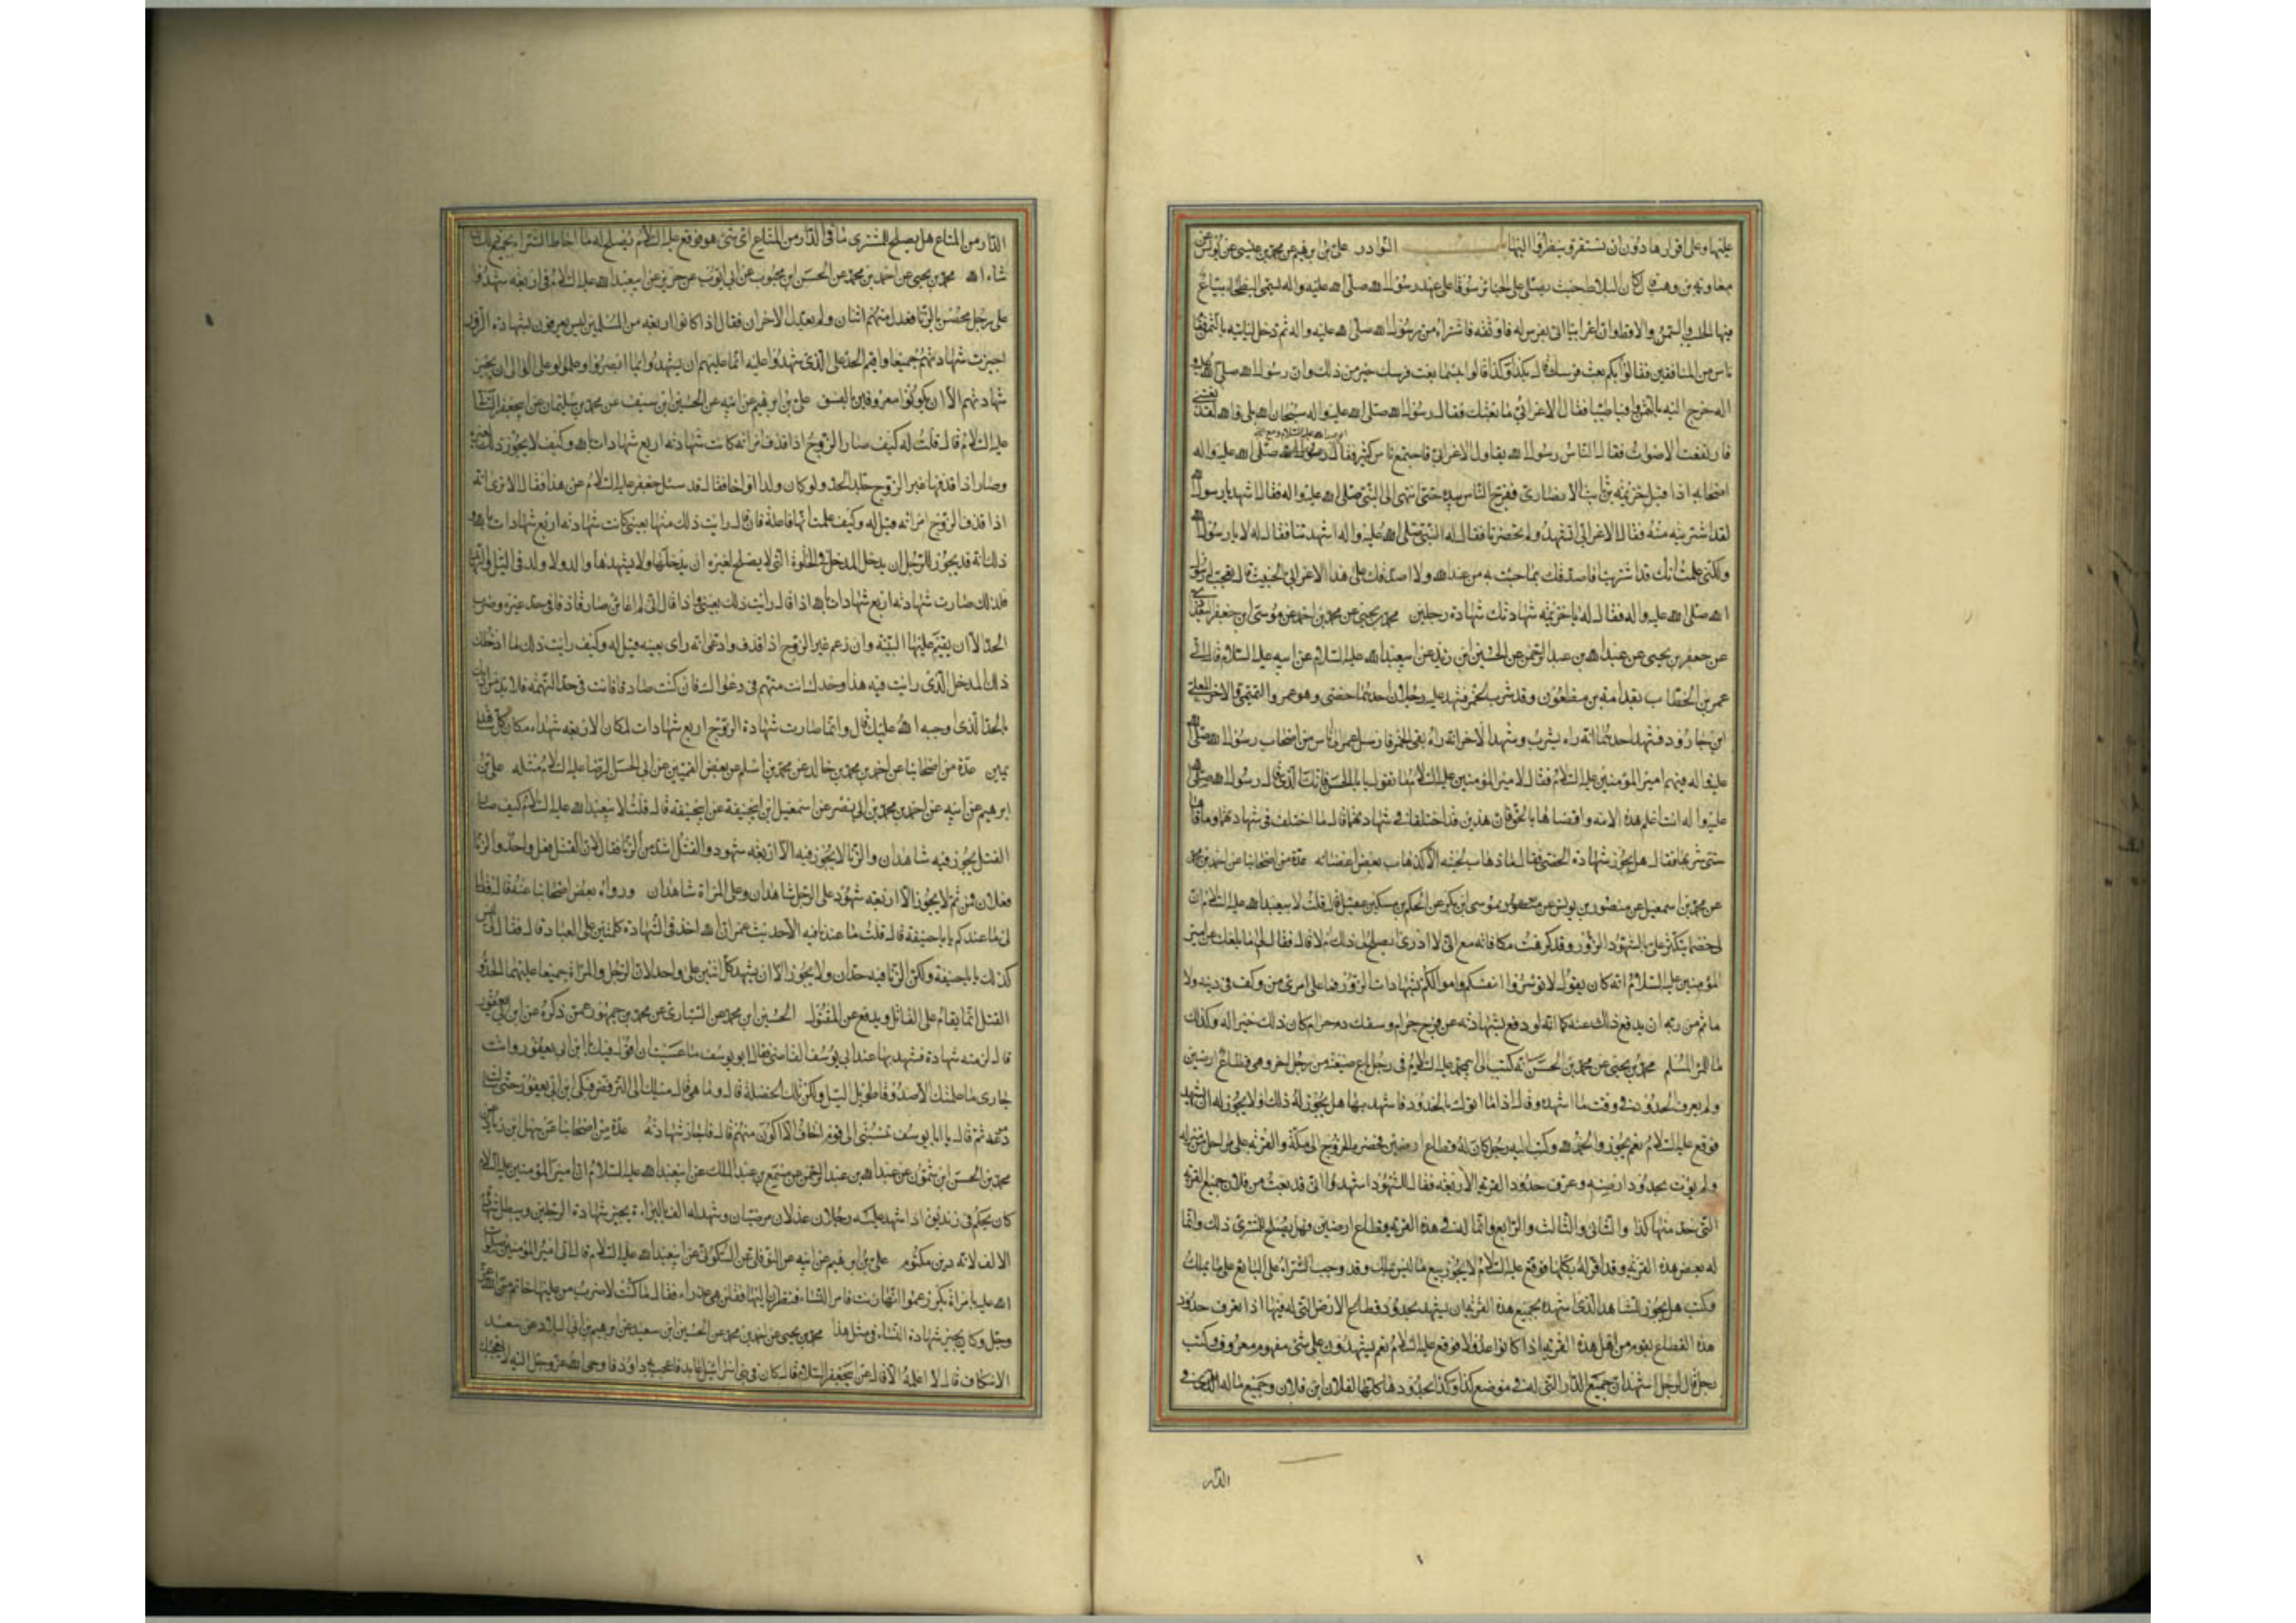 عليها وعلى اقرارها دون ان تسفر وينظروا اليها باب النوادر على بن ابرهيم عن محمد بن عيسى عن يونس عن
معاوية بن وهب قال كان البلاط حيث يصلى على الجنائز سوقا على عهد رسول الله صلى الله عليه واله يسمى البطحاء يباع
فيها الحليب والسمن والاقط وان اعرابيا اتى بفرس له فاوثقه فاشتراه من رسول الله صلى الله عليه واله ثم دخل لياتيه بالثمن فقام
ناس من المنافقين فقالوا بكم بعت فرسك قال بكذا وكذا قالوا بئسما بعت فرسك خير من ذلك وان رسول الله صلى الله عليه و
اله خرج اليه بالثمن وافيا طيبا فقال الاعرابي ما بعتك فقال رسول الله صلى الله عليه واله سبحان الله بلى والله لقد بعتني
فارتفعت الاصوات فقال الناس رسول الله يقاول الاعرابي فاجتمع ناس كثير فقال رسول الله صلى الله عليه واله
اصحابه اذا قبل خزيمة بن ثابت الانصارى ففرج الناس بيده حتى انتهى الى النبي صلى الله عليه واله فقال اشهد يا رسول الله
لقد اشتريته منه فقال الاعرابي اتشهد ولم تحضرنا فقال له النبي صلى الله عليه واله اشهدتنا فقال له لا يا رسول الله
ولكنى علمت انك قد اشتريت افاصدقك بما جئت به من عند الله ولا اصدقك على هذا الاعرابي الخبيث قال فعجب له رسول
الله صلى الله عليه واله فقال له يا خزيمة شهادتك شهادة رجلين محمد بن يحيى عن محمد بن احمد عن موسى ابن جعفر البغدادى
عن جعفر بن يحيى عن عبد الله بن عبد الرحمن عن الحسين ابن زيد عن ابيعبد الله عليه السلام عن ابيه عليه السلام قال اتى
عمر بن الخطاب بقدامة بن مظعون وقد شرب الخمر فشهد عليه رجلان احدهما خصى وهو عمرو التميمى والاخر المعلى
ابن جارود فشهد احدهما انه راه يشرب وشهد الاخر انه راه يقئ الخمر فارسل عمر الى ناس من اصحاب رسول الله صلى الله
عليه واله فيهم امير المؤمنين عليه السلام فقال لامير المؤمنين عليه السلام ما تقول يا ابا الحسن فانك الذى قال رسول الله صلى الله
عليه واله انت اعلم هذه الامة واقضاها بالحق فان هذين قد اختلفا في شهادتهما قال ما اختلفا في شهادتهما وما قاءها
حتى شربها فقال هل يجوز شهادة الخصى فقال ما ذهاب لحيته الا كذهاب بعض اعضائه عدة من اصحابنا عن احمد بن محمد
عن محمد بن اسمعيل عن منصور بن يونس عن موسى ابن بكر عن الحكم بن مسكين قال قلت لابيعبد الله عليه السلام ان
لى خصما يتكثر على بالشهود الزور وقد كرهت مكافاته مع انى لا ادرى يصلح لى ذلك ام لا قال فقال لى اما بلغك عن امير
المؤمنين عليه السلام انه كان يقول لا توسروا انفسكم واموالكم بشهادات الزور فما على امرئ من وكف في دينه ولا
ماثم من ربه ان يدفع ذلك عنه كما انه لو دفع بشهادته عن فرج حرام وسفك دم حرام كان ذلك خيرا له وكذلك
مال المرء المسلم محمد بن يحيى عن محمد بن الحسن انه كتب الى ابيمحمد عليه السلام في رجل باع ضيعته من رجل اخر وهي قطاع ارضين
ولم يعرف الحدود في وقت ما اشهده وقال اذا ما اتوك بالحدود فاشهد بها هل يجوز له ذلك ولا يجوز له ان يشهد
فوقع عليه السلام نعم يجوز والحمد لله وكتب اليه رجل كان له قطاع ارضين فحضره الخروج الى مكة والقرية على مراحل من منزله
ولم يؤت بحدود ارضه وعرف حدود القرية الاربعة فقال للشهود اشهدوا انى قد بعت من فلان جميع القرية
التى حد منها كذا والثانى والثالث والرابع وانما له في هذه القرية قطاع ارضين فهل يصلح للمشترى ذلك وانما
له بعض هذه القرية وقد اقر له بكلها فوقع عليه السلام لا يجوز بيع ما ليس يملك وقد وجب الشراء على البايع على ما يملك
وكتب هل يجوز للشاهد الذى اشهده بجميع هذه القرية ان يشهد بحدود قطاع الارض التى له فيها اذا تعرف حدود
هذه القطاع بقوم من اهل هذه القرية اذا كانوا عدولا فوقع عليه السلام نعم يشهدون على شئ مفهوم معروف وكتب
رجل قال لرجل اشهد ان جميع الدار التى له في موضع كذا وكذا بحدودها كلها لفلان ابن فلان وجميع ما له في
الدار
الدار من المتاع هل يصلح للمشترى ما في الدار من المتاع اى شئ هو فوقع عليه السلام يصلح له ما احاط الشراء بجميع ذلك ان
شاء الله محمد بن يحيى عن احمد بن محمد عن الحسن ابن محبوب عن ابى ايوب عن حريز عن ابيعبد الله عليه السلام في اربعة شهدوا
على رجل محصن بالزنا فعدل منهم اثنان ولم يعدل الاخران فقال اذا كانوا اربعة من المسلمين ليس يعرفون بشهادة الزور
اجيزت شهادتهم جميعا واقيم الحد على الذى شهدوا عليه انما عليهم ان يشهدوا بما ابصروا وعلموا وعلى الوالى ان يجيز
شهادتهم الا ان يكونوا معروفين بالفسق على بن ابرهيم عن ابيه عن الحسين ابن سيف عن محمد بن سليمان عن ابيجعفر الثانى
عليه السلام قال قلت له كيف صار الزوج اذا قذف امراته كانت شهادته اربع شهادات بالله وكيف لا يجوز ذلك لغيره
وصار اذا قذفها غير الزوج جلد الحد ولو كان ولدا او اخا فقال قد سئل جعفر عليه السلام عن هذا فقال الا ترى انه
اذا قذف الزوج امراته قيل له وكيف علمت انها فاعلة فان قال رايت ذلك منها بعينى كانت شهادته اربع شهادات بالله و
ذلك انه قد يجوز للرجل ان يدخل المدخل في الخلوة التى لا يصلح لغيره ان يدخلها ولا يشهدها والد ولا ولد في الليل والنهار
فلذلك صارت شهادته اربع شهادات بالله اذا قال رايت ذلك بعينى واذا قال انى لم اعاين صار قاذفا في حد غيره وضرب
الحد الا ان يقيم عليها البينة وان زعم غير الزوج اذا قذف وادعى انه راى بعينه قيل له وكيف رايت ذلك وما ادخلك
ذلك المدخل الذى رايت فيه هذا وحدك انت متهم في دعواك فان كنت صادقا فانت في حد التهمة فلا بد من ادبك
بالحد الذى اوجبه الله عليك قال وانما صارت شهادة الزوج اربع شهادات لمكان الاربعة شهداء مكان كل شاهد
يمين عدة من اصحابنا عن احمد بن محمد بن خالد عن محمد بن اسلم عن بعض القميين عن ابى الحسن الرضا عليه السلام مثله على بن
ابرهيم عن ابيه عن احمد بن محمد بن ابى نصر عن اسمعيل ابن ابيحنيفة عن ابيحنيفة قال قلت لابيعبد الله عليه السلام كيف صار
القتل يجوز فيه شاهدان والزنا لا يجوز فيه الا اربعة شهود والقتل اشد من الزنا فقال لان القتل فعل واحد والزنا
فعلان فمن ثم لا يجوز الا اربعة شهود على الرجل شاهدان وعلى المراة شاهدان ورواه بعض اصحابنا عنه قال فقال
لى ما عندكم يا ابا حنيفة قال قلت ما عندنا فيه الا حديث عمر ان الله اخذ في الشهادة كلمتين على العباد قال فقال لى ليس
كذلك يا ابا حنيفة ولكن الزنا فيه حدان ولا يجوز الا ان يشهد كل اثنين على واحد لان الرجل والمراة جميعا عليهما الحد و
القتل انما يقام على القاتل ويدفع عن المقتول الحسين ابن محمد عن السيارى عن محمد بن جمهور عمن ذكره عن ابن ابى يعفور
قال لزمته شهادة فشهد بها عند ابى يوسف القاضى فقال ابو يوسف ما عسيت ان اقول فيك يا ابن ابى يعفور وانت
جارى ما علمتك الا صدوقا طويل الليل ولكن تلك الخصلة قال وما هى قال ميلك الى الترفض فبكى ابن ابى يعفور حتى سالت
دموعه ثم قال يا ابا يوسف تنسبنى الى قوم اخاف الا اكون منهم قال فاجاز شهادته عدة من اصحابنا عن سهل ابن زياد عن
محمد بن الحسن ابن شمون عن عبد الله بن عبد الرحمن عن مسمع بن عبد الملك عن ابيعبد الله عليه السلام ان امير المؤمنين عليه السلام
كان يحكم في زنديق اذا شهد عليه رجلان عدلان مرضيان وشهد له الف بالبراءة يجيز شهادة الرجلين ويبطل شهادة
الالف لانه دين مكتوم على بن ابرهيم عن ابيه عن النوفلى عن السكونى عن ابيعبد الله عليه السلام قال اتى امير المؤمنين صلوات
الله عليه بامراة بكر زعموا انها زنت فامر النساء فنظرن اليها فقلن هى عذراء فقال ما كنت لاضرب من عليها خاتم من الله عز
وجل وكان يجيز شهادة النساء في مثل هذا محمد بن يحيى عن احمد بن محمد عن الحسين ابن سعيد عن ابرهيم بن ابى البلاد عن سعد
الاسكاف قال لا اعلمه الا قال عن ابيجعفر عليه السلام قال كان في بنى اسرائيل عابد فاعجب به داود فاوحى الله عز وجل اليه لا يعجبك